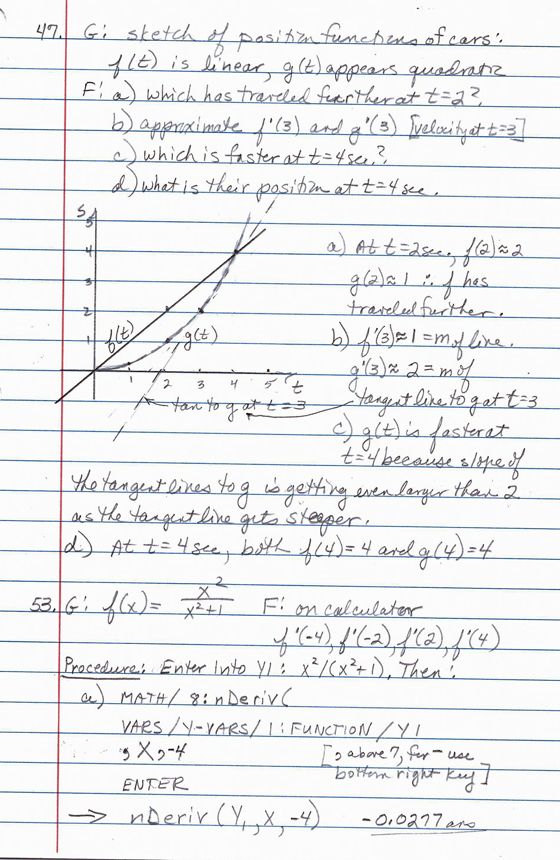 47. G: sketch of position functions of cars:
f(t) is linear, g(t) appears quadratic
F: a) which has traveled further at t=2?
b) approximate f'(3) and g'(3) [velocity at t=3]
c) which is faster at t=4sec.?
d) what is their position at t=4 sec.
S
5
4
3
2
1
f(t)
g(t)
1 2 3 4 5 t
tan to g at t=3
a) At t=2sec., f(2)≈2
g(2)≈1 ∴ f has
traveled further.
b) f'(3)≈1=m of line.
g'(3)≈2=m of
tangent line to g at t=3
c) g(t) is faster at
t=4 because slope of
the tangent lines to g is getting even larger than 2
as the tangent line gets steeper.
d.) At t=4sec, both f(4)=4 and g(4)=4
53. G: f(x)= x²/(x²+1) F: on calculator
f'(-4), f'(-2), f'(2), f'(4)
Procedure: Enter into Y1: x²/(x²+1), Then:
a) MATH/ 8: nDeriv(
VARS/Y-VARS/1:FUNCTION/Y1
, X, -4 [, above 7, for – use
bottom right key]
ENTER
→ nDeriv(Y₁, X, -4) -0.0277 ans